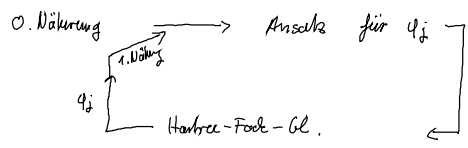 0. Näherung ⟶ Ansatz für φj
1. Näherung
φj
Hartree-Fock-Gl.